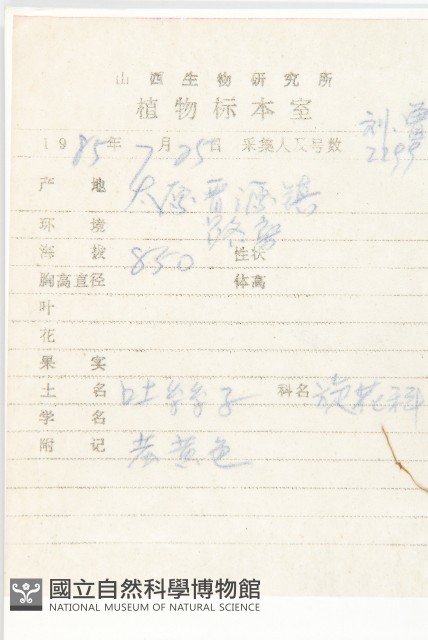 山西生物研究所
植物标本室
刘
1985年7月25日 采集人及号数 2299
产地 太原晋源镇
环境 路旁
海拔 850 性状
胸高直径 体高
叶
花
果实
土名 吐丝子 科名 旋花科
学名
附记 茶黄色
國立自然科學博物館
NATIONAL MUSEUM OF NATURAL SCIENCE